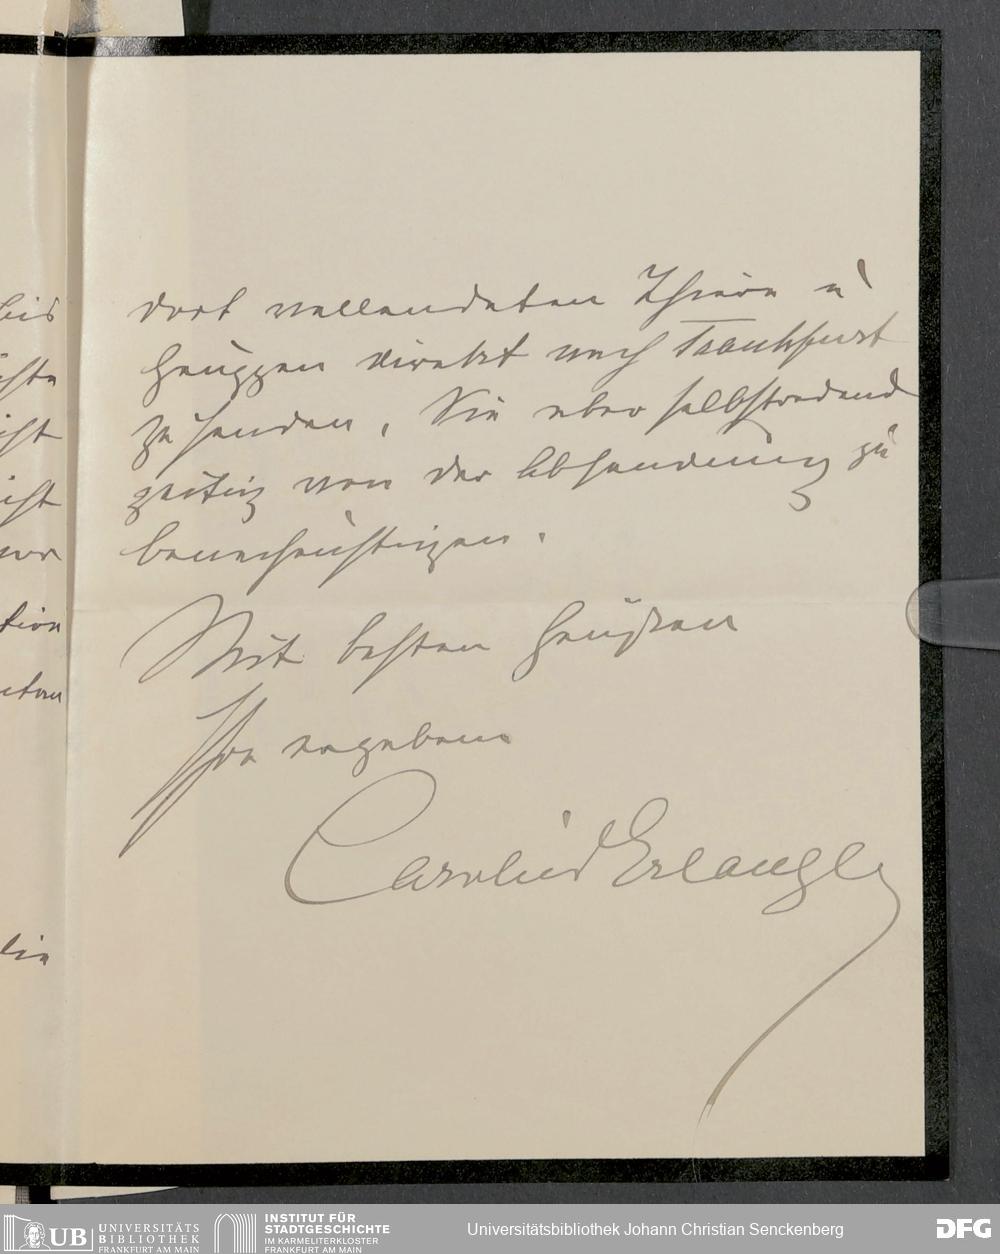 dort vollendeten Thiere u
Gruppen direkt nach Frankfurt
zu senden, Sie aber selbstredend
zeitig von der Absendung zu
benachrichtigen.
Mit besten Grüßen
Ihre ergebene
Erlanger
bis
chte
cht
icht
vor
tion
die
UB UNIVERSITÄTS
BIBLIOTHEK
FRANKFURT AM MAIN
INSTITUT FÜR
STADTGESCHICHTE
IM KARMELITERKLOSTER
FRANKFURT AM MAIN
Universitätsbibliothek Johann Christian Senckenberg
DFG